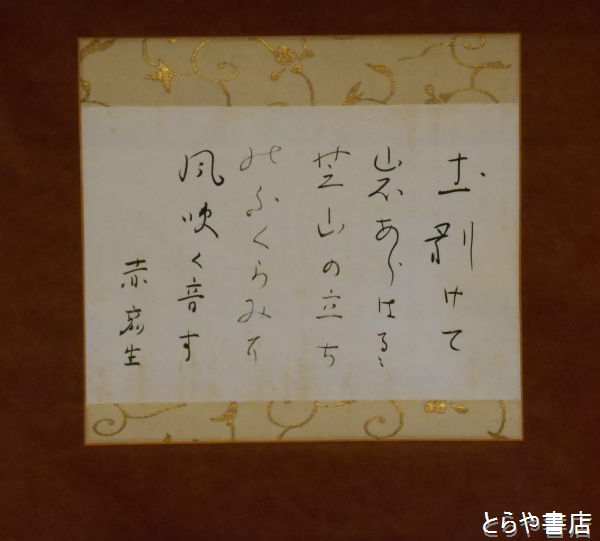 土剥けて
岩あらはるゝ
芝山の立ち
のふくらみに
風吹く音す
赤彦生
とらや書店